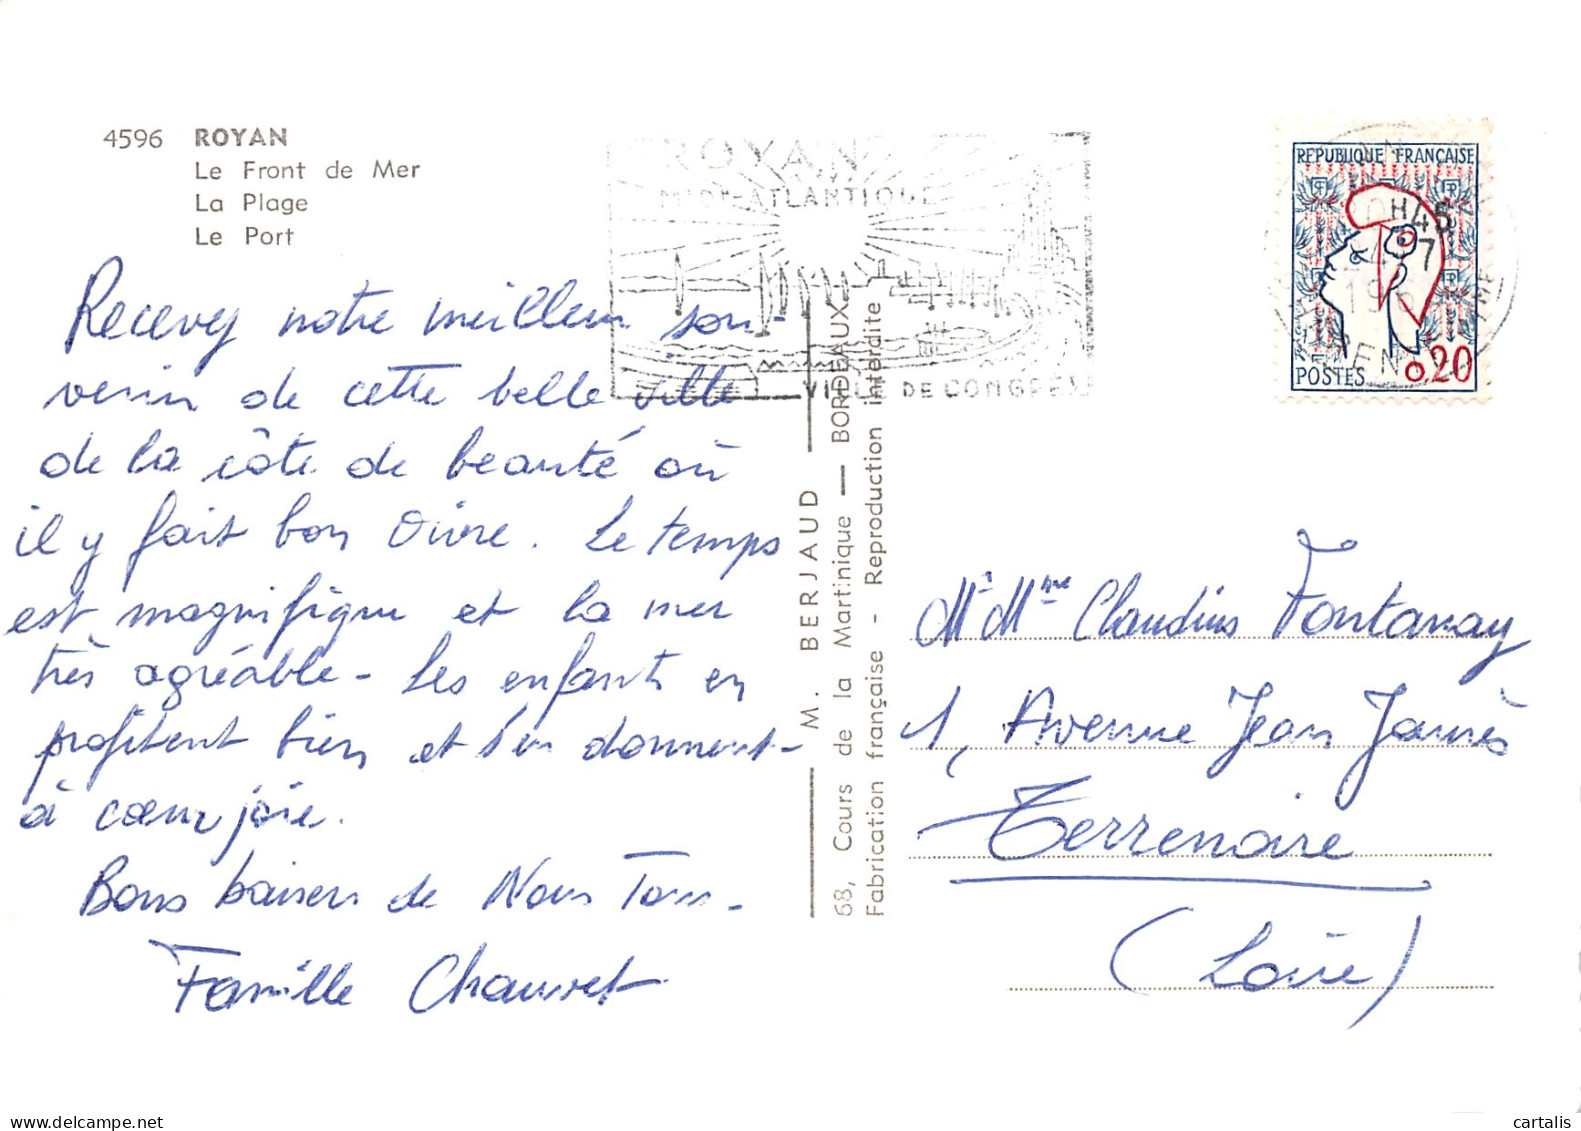 4596 ROYAN
Le Front de Mer
La Plage
Le Port
Recevez notre meilleur sou-
venir de cette belle ville
de la côte de beauté où
il y fait bon vivre. Le temps
est magnifique et la mer
très agréable - Les enfants en
profitent bien et s'en donnent
à cœur joie.
Bons baisers de Nous Tous -
Famille Chauvet
ROYAN
MIDI-ATLANTIQUE
VILLE DE CONGRÈS
M. BERJAUD
68, Cours de la Martinique — BORDEAUX
Fabrication française - Reproduction interdite
REPUBLIQUE FRANÇAISE
POSTES 0,20
H45
7
19
Mr Mme Claudius Fontanay
1, Avenue Jean Jaurès
Terrenoire
(Loire)
cartalis
www.delcampe.net